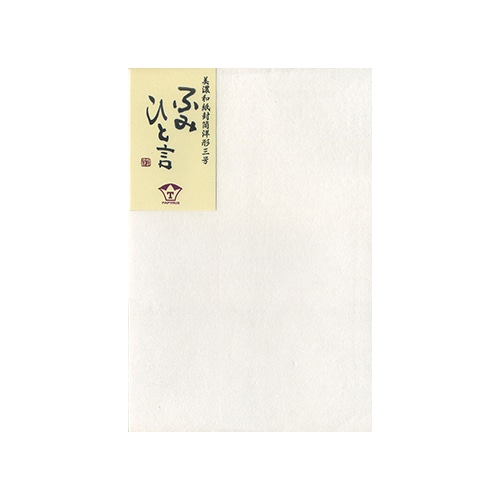 美濃和紙封筒洋形三号
ふみ
ひと言
T
PAPYRUS